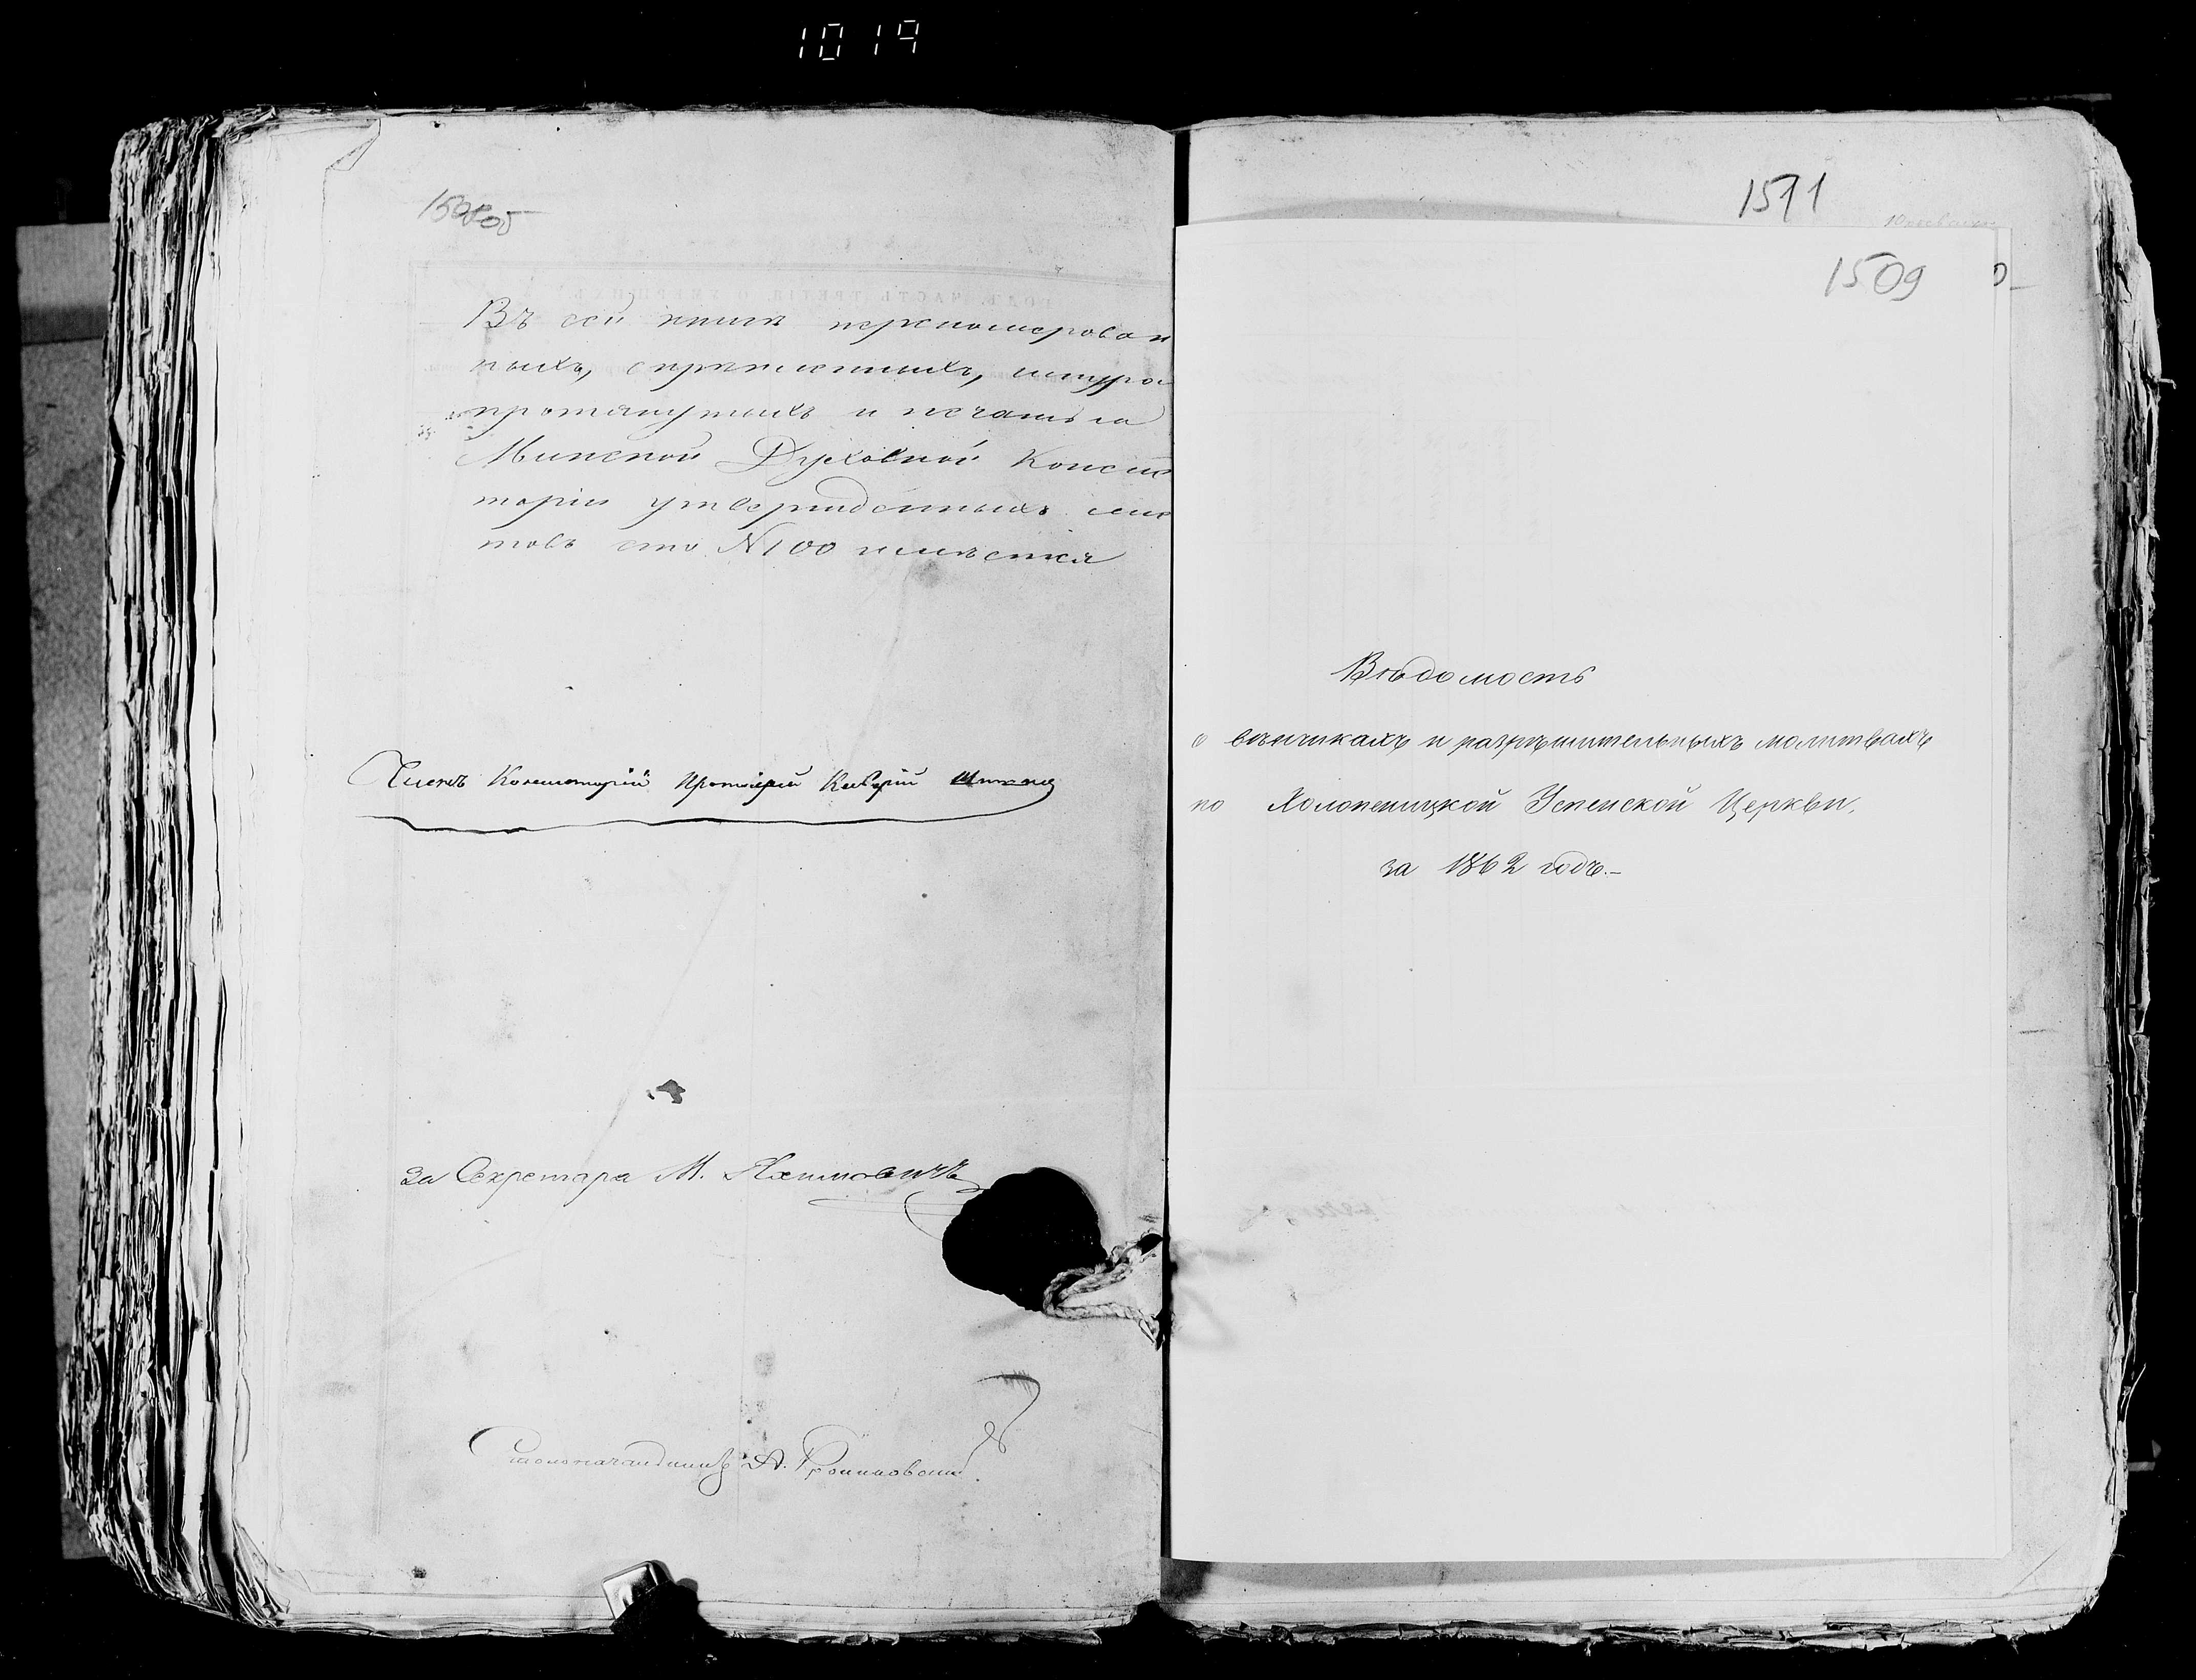 1019
1508об
Въ сей книгѣ перенумерован
ныхъ, скрѣпленныхъ, шнуро
протянутыхъ и печатью
Минской Духовной Конси
торіи утвержденныхъ лис
товъ сто N100 имѣется
Членъ Консисторіи Протоіерей
За Секретаря М.
Столоначальникъ А.
1511
1509
Вѣдомость
о вѣнчикахъ и разрѣшительныхъ молитвахъ
по Холопеницкой Успенской Церкви,
за 1862 годъ.-